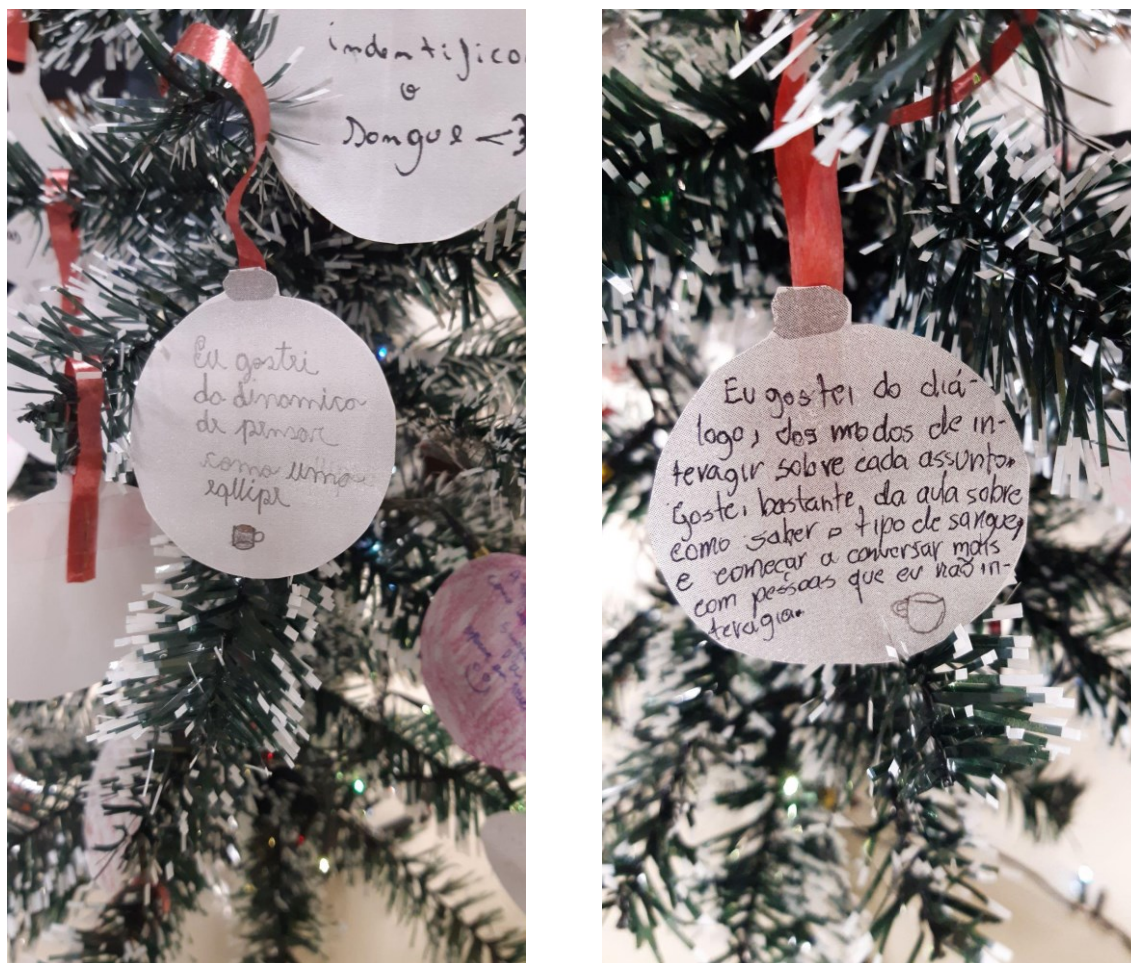 indentifico
o
sangue <3
Eu gostei
da dinamica
de pensar
como uma
equipe
Eu gostei do diá-
logo, dos modos de in-
teragir sobre cada assunto.
Gostei bastante, da aula sobre
como saber o tipo de sangue,
e começar a conversar mais
com pessoas que eu não in-
teragia.